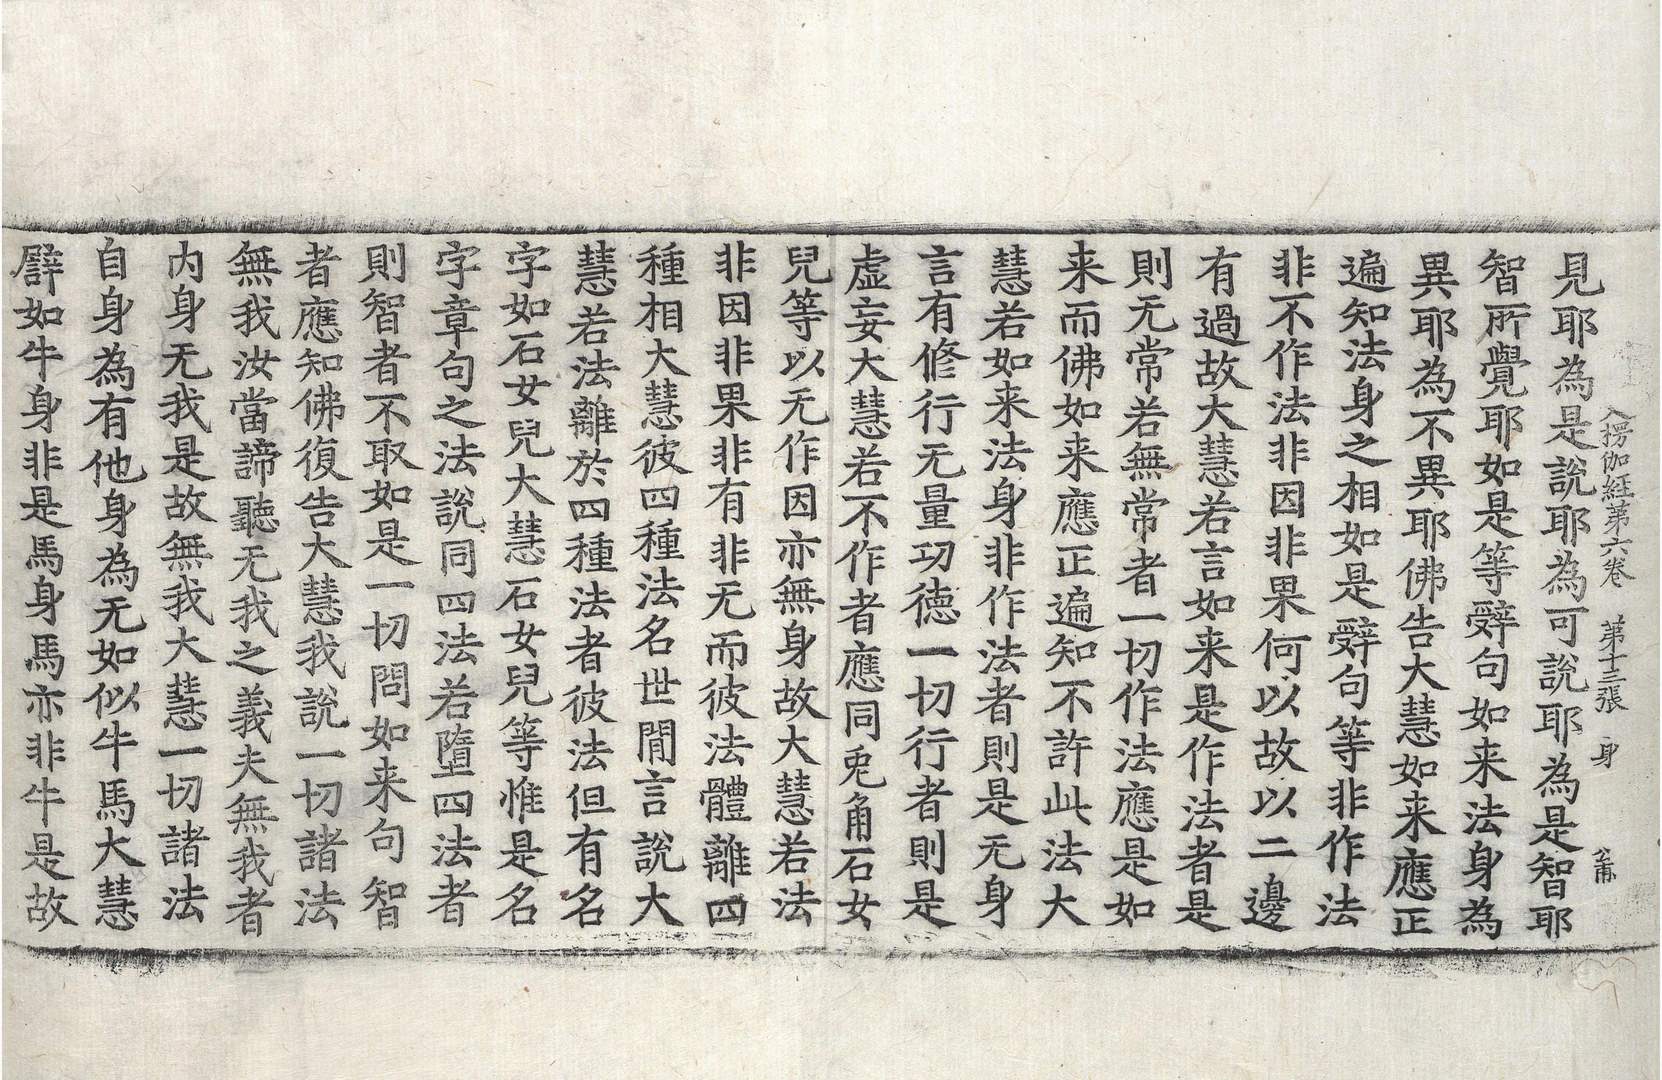 入楞伽經第六卷 第十三張 身
見耶為是說耶為可說耶為是智耶
智所覺耶如是等辭句如来法身為
異耶為不異耶佛告大慧如来應正
遍知法身之相如是辭句等非作法
非不作法非因非果何以故以二邊
有過故大慧若言如来是作法者是
則无常若無常者一切作法應是如
来而佛如来應正遍知不許此法大
慧若如来法身非作法者則是无身
言有修行无量功德一切行者則是
虚妄大慧若不作者應同兎角石女
兒等以无作因亦無身故大慧若法
非因非果非有非无而彼法體離四
種相大慧彼四種法名世閒言說大
慧若法離於四種法者彼法但有名
字如石女兒大慧石女兒等惟是名
字章句之法說同四法若墮四法者
則智者不取如是一切問如来句智
者應知佛復告大慧我說一切諸法
無我汝當諦聽无我之義夫無我者
内身无我是故無我大慧一切諸法
自身為有他身為无如似牛馬大慧
譬如牛身非是馬身馬亦非牛是故